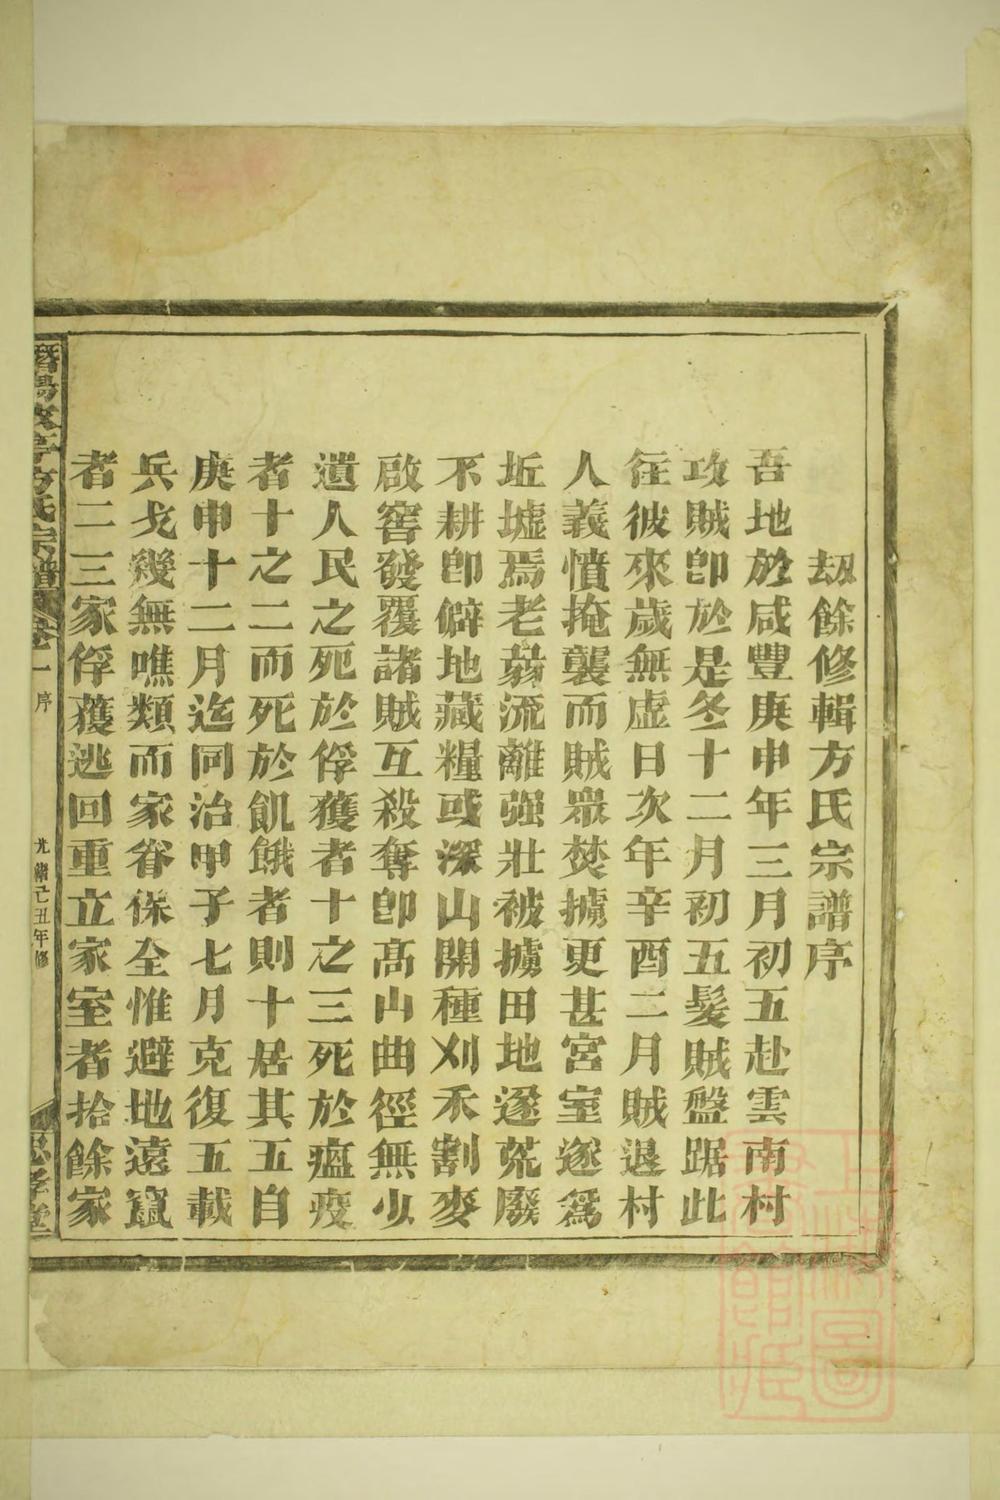 劫餘修輯方氏宗譜序
吾地於咸豐庚申年三月初五赴雲南村
攻賊卽於是冬十二月初五髮賊盤踞此
徃彼來歲無虛日次年辛酉二月賊退村
人義憤掩襲而賊眾焚擄更甚宮室遂爲
坵墟焉老蒻流離强壯被擄田地遂荒廢
不耕卽僻地藏糧或深山開種刈禾割麥
啟窖發覆諸賊互殺奪卽高山曲徑無少
遺人民之死於俘獲者十之三死於瘟疫
者十之二而死於飢餓者則十居其五自
庚申十二月迄同治甲子七月克復五載
兵戈幾無噍類而家眷保全惟避地遠竄
者二三家俘蒦逃回重立家室者拾餘家
方氏宗譜 卷一 序 光緖己丑年修 忠孝堂
上海圖書館藏